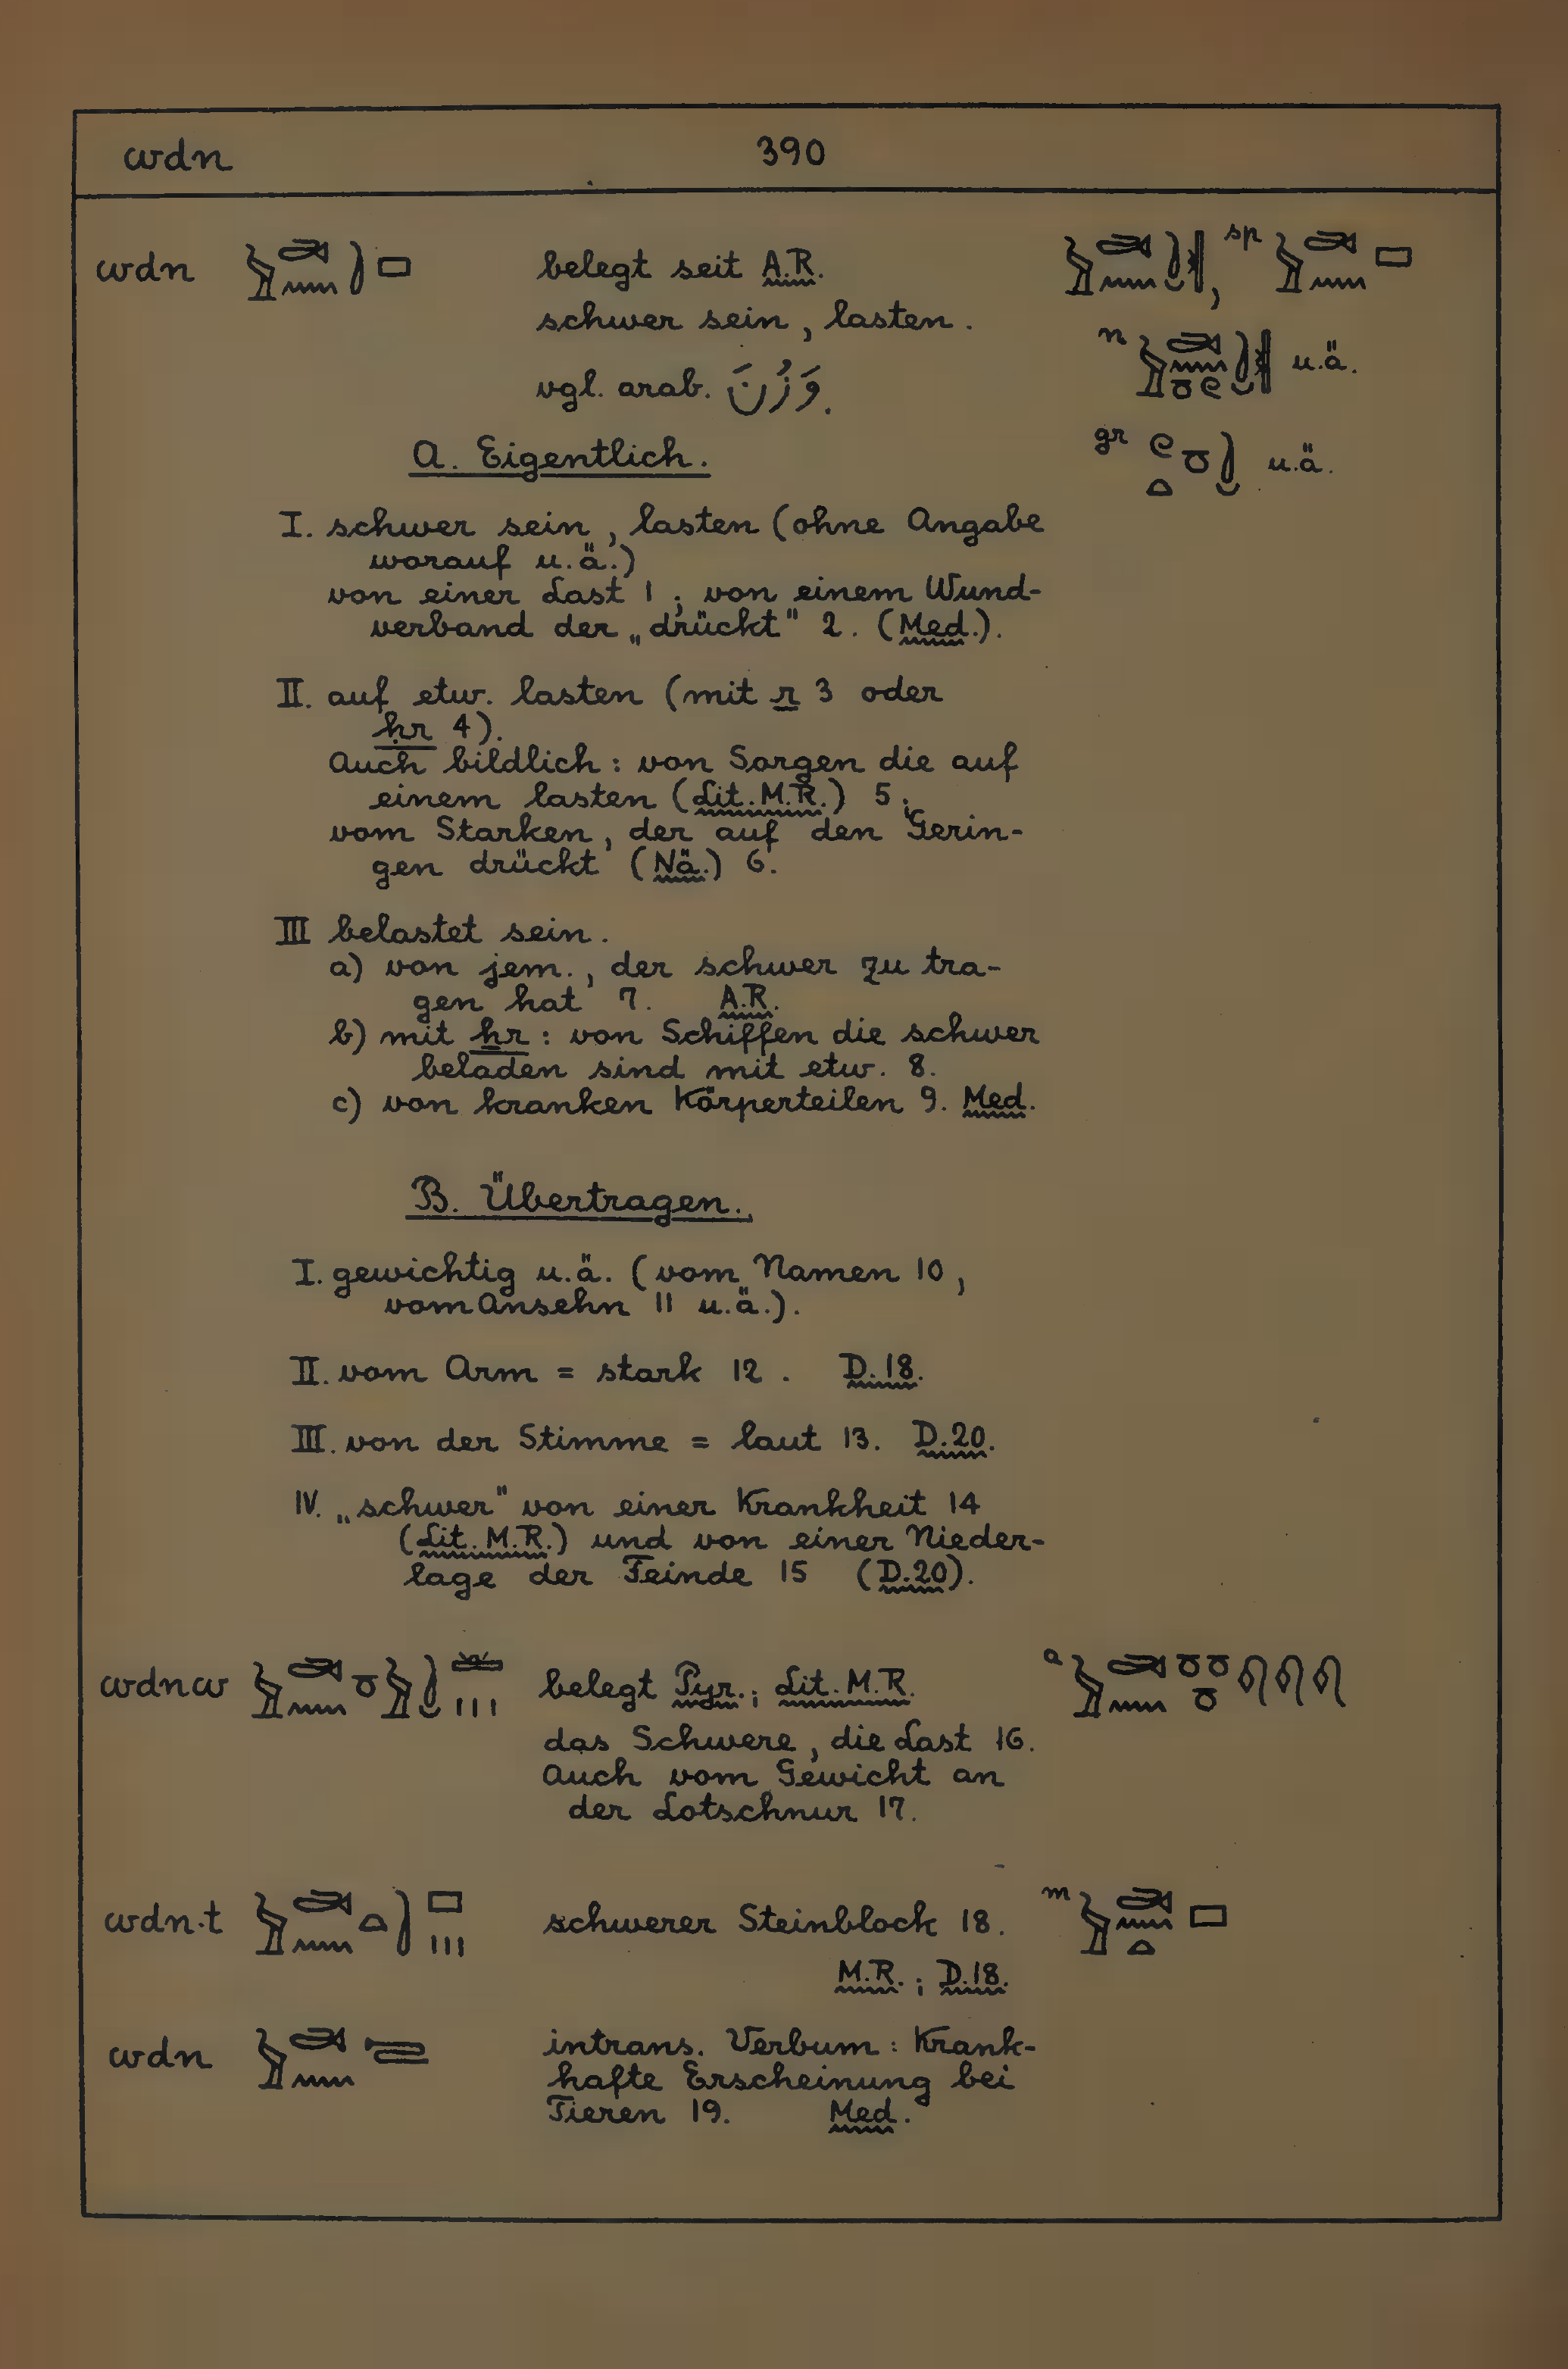 wdn 390
wdn belegt seit A.R. sp
schwer sein, lasten.
n u.ä.
vgl. arab. وَزُنَ.
gr u.ä.
A. Eigentlich.
I. schwer sein, lasten (ohne Angabe
worauf u.ä.)
von einer Last 1; von einem Wund-
verband der „drückt" 2. (Med.).
II. auf etw. lasten (mit r 3 oder
ḥr 4).
Auch bildlich: von Sorgen die auf
einem lasten (Lit. M.R.) 5;
vom Starken, der auf den Gerin-
gen drückt (Nä.) 6.
III belastet sein.
a) von jem., der schwer zu tra-
gen hat 7. A.R.
b) mit ẖr: von Schiffen die schwer
beladen sind mit etw. 8.
c) von kranken Körperteilen 9. Med.
B. Übertragen.
I. gewichtig u.ä. (vom Namen 10,
vom Ansehn 11 u.ä.).
II. vom Arm = stark 12. D.18.
III. von der Stimme = laut 13. D.20.
IV. „schwer" von einer Krankheit 14
(Lit. M.R.) und von einer Nieder-
lage der Feinde 15 (D.20).
wdnw belegt Pyr.; Lit. M.R. a
das Schwere, die Last 16.
Auch vom Gewicht an
der Lotschnur 17.
wdn.t schwerer Steinblock 18. m
M.R.; D.18.
wdn intrans. Verbum: Krank-
hafte Erscheinung bei
Tieren 19. Med.